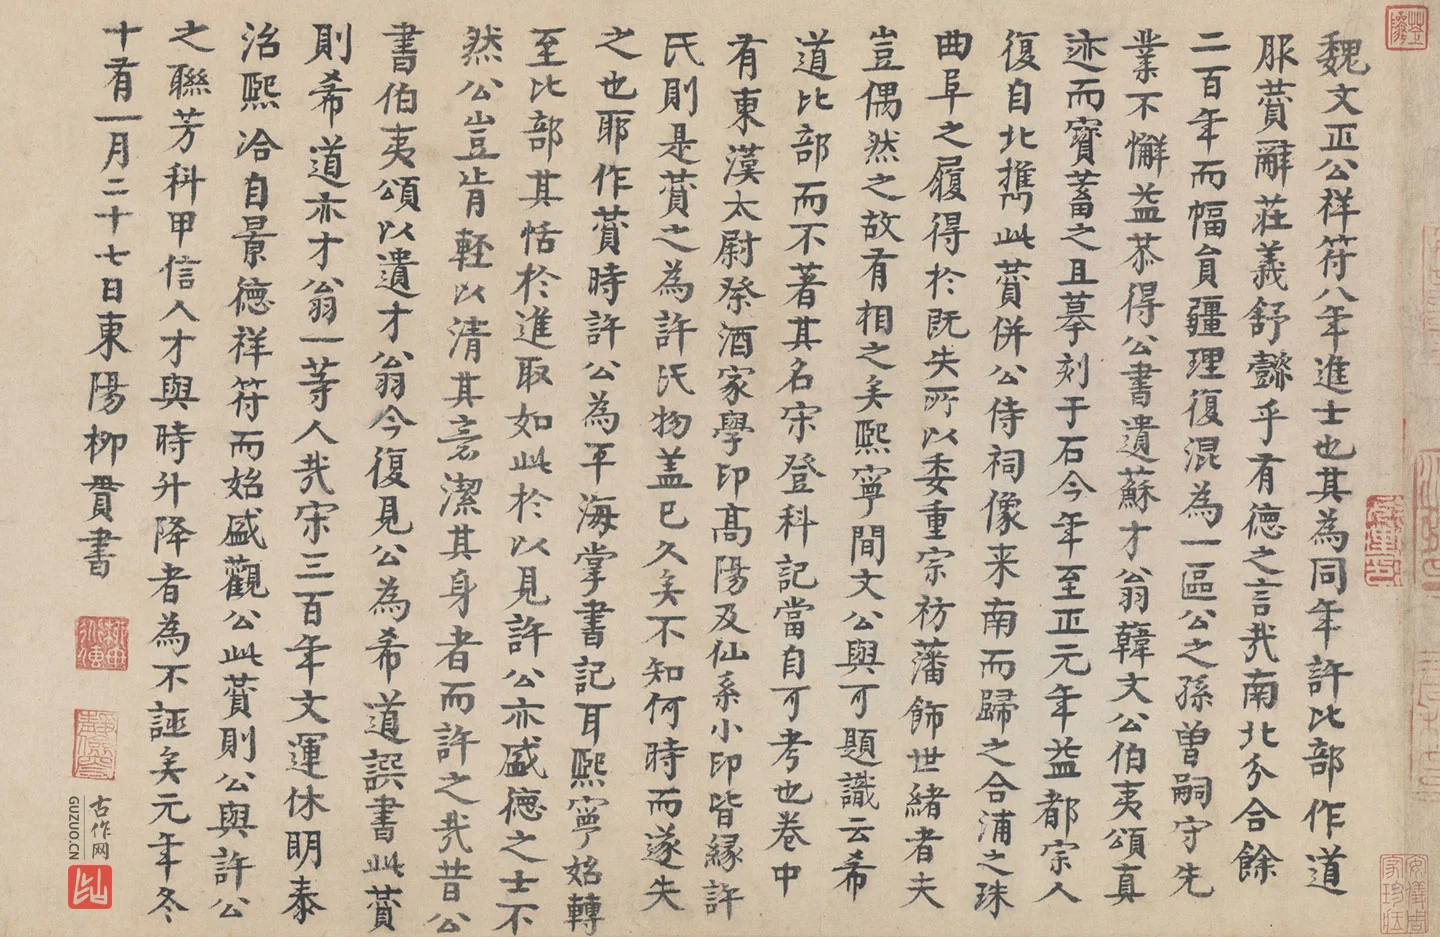 魏文正公祥符八年進士也其為同年許比部作道
服賛辭莊義舒懿乎有德之言哉南北分合餘
二百年而幅員疆理復混為一區公之孫曽嗣守先
業不懈益恭得公書遺蘇才翁韓文公伯夷頌真
迹而寳蓄之且摹刻于石今年至正元年益都宗人
復自北攜此賛併公侍祠像来南而歸之合浦之珠
曲阜之履得於既失所以委重宗祊藩飾世緒者夫
豈偶然之故有相之矣熙寧間文公與可題識云希
道比部而不著其名宋登科記當自可考也卷中
有東漢太尉祭酒家學印高陽及仙系小印皆縁許
氏則是賛之為許氏物盖已久矣不知何時而遂失
之也耶作賛時許公為平海掌書記耳熙寧始轉
至比部其恬於進取如此於以見許公亦盛德之士不
然公豈肯輕以清其意潔其身者而許之哉昔公
書伯夷頌以遺才翁今復見公為希道譔書此賛
則希道亦才翁一等人哉宋三百年文運休明泰
治熙洽自景德祥符而始盛觀公此賛則公與許公
之聯芳科甲信人才與時升降者為不誣矣元年冬
十有一月二十七日東陽柳貫書
古作网
GUZUO.CN